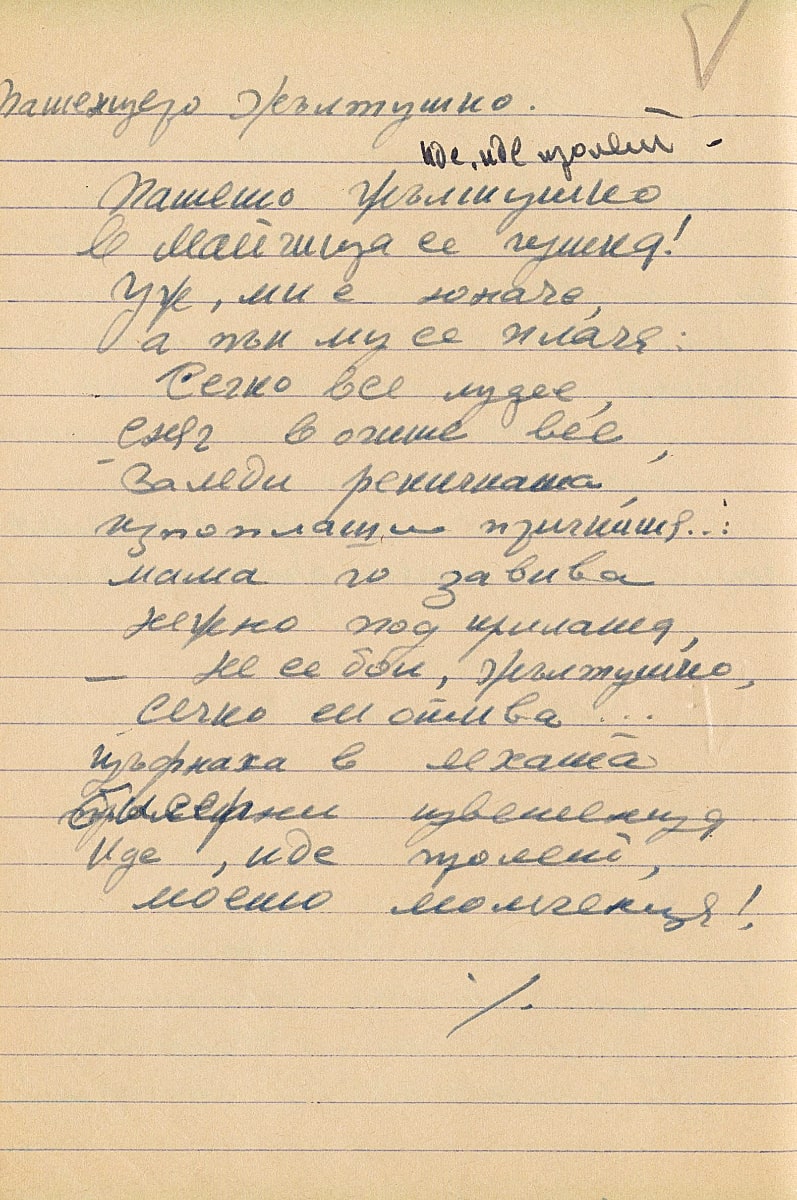 Патенцето Жълтушко.
Иде, иде пролет -
Патето Жълтушко
в майчица се гушка!
Уж, ми е юначе,
а пък му се плаче:
Сечко все лудее,
сняг в очите вее,
заледи рекичката,
изпоплаши птичките..:
мама го завива
нежно под крилата,
– Не се бой, Жълтушко,
Сечко си отива ...
цъфнаха в лехата
бисерни цветенца
Иде, иде пролет,
моето момченце!